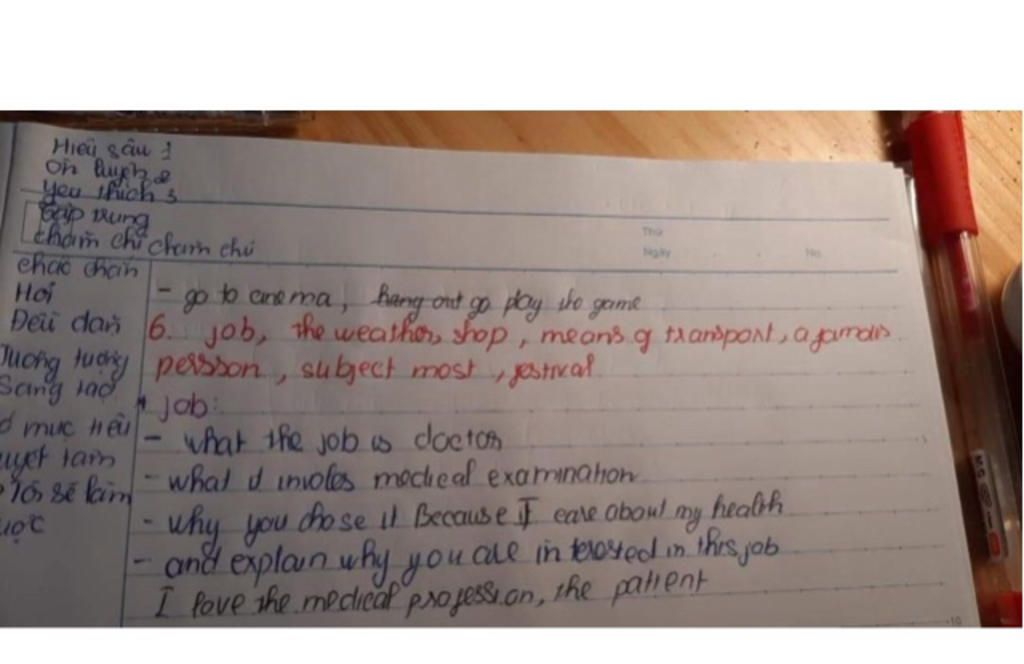 Hiểu sâu 1
Ôn luyện 2
yêu thích 3
tập trung
chăm chỉ chăm chú
chắc chắn
Hỏi
Đều dặn
Tưởng tượng
Sáng tạo
mục tiêu
tâm
Tôi sẽ làm
được
Thứ
Ngày
No.
- go to cinema, hang out go play the game
6. job, the weather, shop, means of transport, a famous
persson, subject most, festival
* job:
- what the job is doctor
- what it involes medical examination
- why you chose it Because I care about my health
- and explain why you are interested in this job
I love the medical profession, the patient
10